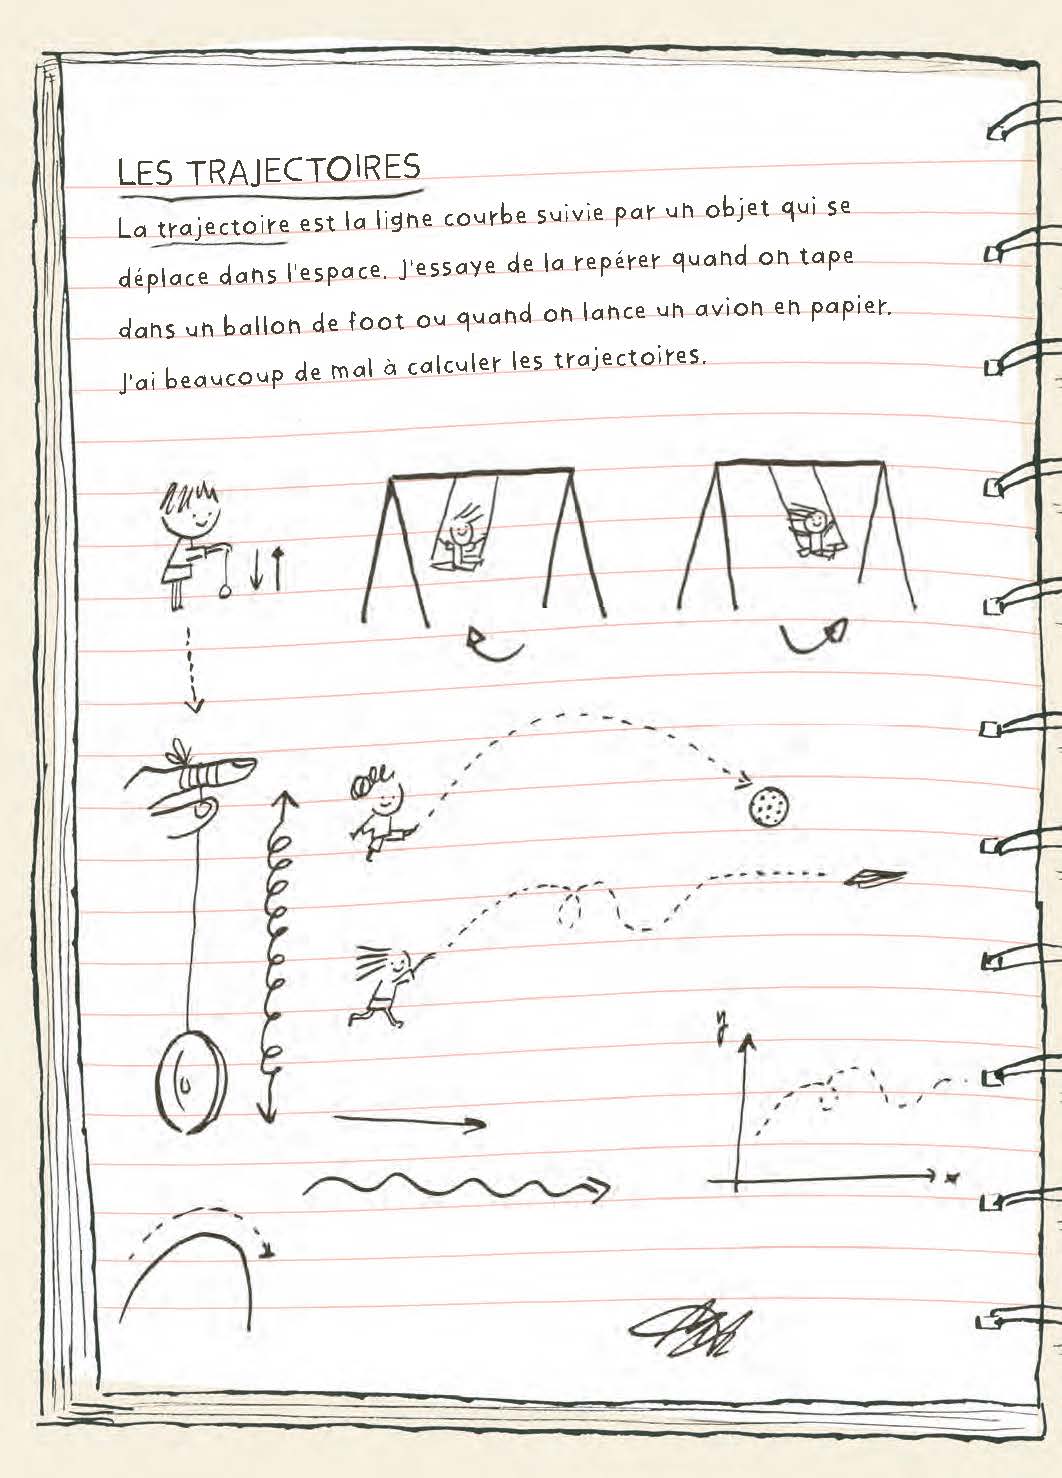 LES TRAJECTOIRES
La trajectoire est la ligne courbe suivie par un objet qui se
déplace dans l'espace. J'essaye de la repérer quand on tape
dans un ballon de foot ou quand on lance un avion en papier.
J'ai beaucoup de mal à calculer les trajectoires.
y
x